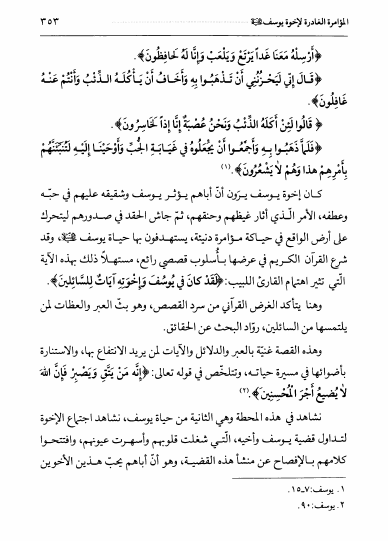 المؤامرة الغادرة لإخوة يوسف ﵇ ٣٥٣
﴿أَرْسِلْهُ مَعَنَا غَداً يَرْتَعْ وَيَلْعَبْ وَإِنَّا لَهُ لَحَافِظُونَ﴾.
﴿قَالَ إِنِّي لَيَحْزُنُنِي أَنْ تَذْهَبُوا بِهِ وَأَخَافُ أَنْ يَأْكُلَهُ الذِّئْبُ وَأَنْتُمْ عَنْهُ
غَافِلُونَ﴾.
﴿ قَالُوا لَئِنْ أَكَلَهُ الذِّئْبُ وَنَحْنُ عُصْبَةٌ إِنَّا إِذاً لَخَاسِرُونَ﴾.
﴿فَلَمَّا ذَهَبُوا بِهِ وَأَجْمَعُوا أَنْ يَجْعَلُوهُ فِي غَيَابَةِ الْجُبِّ وَأَوْحَيْنَا إِلَيْهِ لَتُنَبِّئَنَّهُمْ
بِأَمْرِهِمْ هذا وَهُمْ لا يَشْعُرُونَ﴾.(١)
كان إخوة يوسف يرون أن أباهم يؤثر يوسف وشقيقه عليهم في حبّه
وعطفه، الأمر الّذي أثار غيظهم وحنقهم، ثمّ جاش الحقد في صدورهم ليتحرك
على أرض الواقع في حياكة مؤامرة دنيئة، يستهدفون بها حياة يوسف ﵇، وقد
شرع القرآن الكريم في عرضها بأسلوب قصصي رائع، مستهلاً ذلك بهذه الآية
الّتي تثير اهتمام القارئ اللبيب: ﴿لَقَدْ كانَ في يُوسُفَ وَإِخْوَتِهِ آيَاتٌ لِلسَّائِلينَ﴾.
وهنا يتأكد الغرض القرآني من سرد القصص، وهو بثّ العبر والعظات لمن
يلتمسها من السائلين، روّاد البحث عن الحقائق.
وهذه القصة غنيّة بالعبر والدلائل والآيات لمن يريد الانتفاع بها، والاستنارة
بأضوائها في مسيرة حياته، وتتلخّص في قوله تعالى: ﴿إِنَّه مَنْ يَتَّقِ وَيَصْبِرْ فَإِنَّ اللهَ
لا يُضيعُ أَجْرَ الْمُحْسِنينَ﴾.(٢)
نشاهد في هذه المحطة وهي الثانية من حياة يوسف، نشاهد اجتماع الإخوة
لتداول قضية يوسف وأخيه، الّتي شغلت قلوبهم وأسهرت عيونهم، وافتتحوا
كلامهم بالإفصاح عن منشأ هذه القضية، وهو أنّ أباهم يحبّ هذين الأخوين
١. يوسف:٧ـ١٥.
٢. يوسف:٩٠.